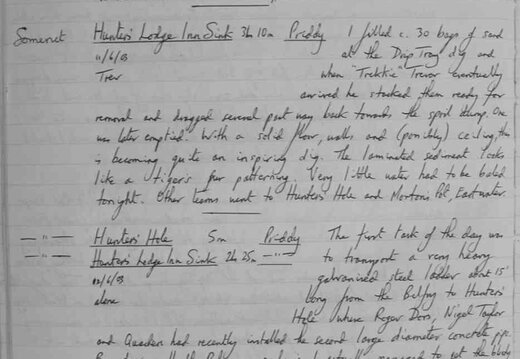 Somerset Hunters' Lodge Inn Sink 3h 10m Priddy I filled c. 30 bags of sand
11/6/03 at the Drip Tray dig and
Trev when "Trickie" Trevor eventually
arrived he stacked them ready for
removal and dragged several part way back towards the spoil dump. One
was later emptied. With a solid floor, walls and (possibly) ceiling, this
is becoming quite an inspiring dig. The laminated sediment looks
like a tiger's fur patterning. Very little water had to be baled
tonight. Other teams went to Hunters' Hole and Morton's Pot, Eastwater.
— " — Hunters' Hole 5m Priddy The first task of the day was
— " — Hunters' Lodge Inn Sink 2h 25m — " — to transport a very heavy
/6/03 galvanised steel ladder about 15'
alone long from the Belfry to Hunters'
Hole where Roger Dors, Nigel Taylor
and Quackers had recently installed the second large diameter concrete pipe.
managed to get the